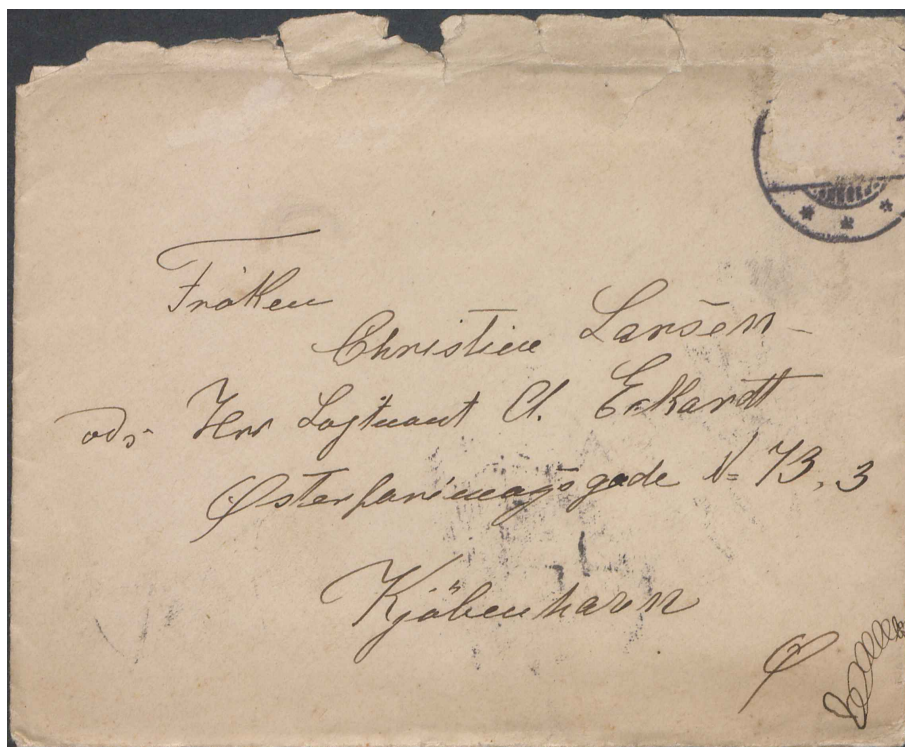 Fröken
Christine Larsen
ads. Herr Løjtnant Cl. Eckardt
Østerfarimagsgade N= 73, 3
Kjöbenhavn
Ø